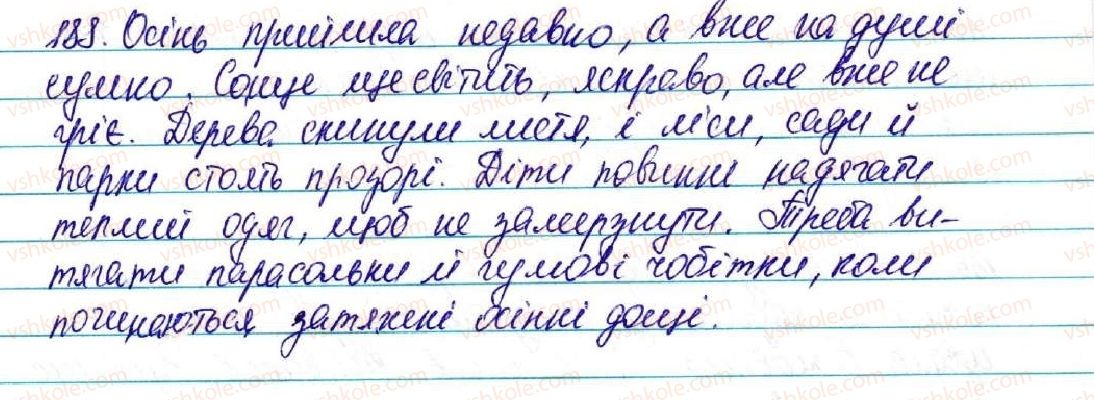 188. Осінь прийшла недавно, а вже на душі
сумно. Сонце ще світить, яскраво, але вже не
гріє. Дерева скинули листя, і ліси, сади й
парки стоять прозорі. Діти повинні надягати
теплий одяг, щоб не замерзнути. Треба ви-
тягати парасольки й гумові чобітки, коли
починаються затяжні осінні дощі.